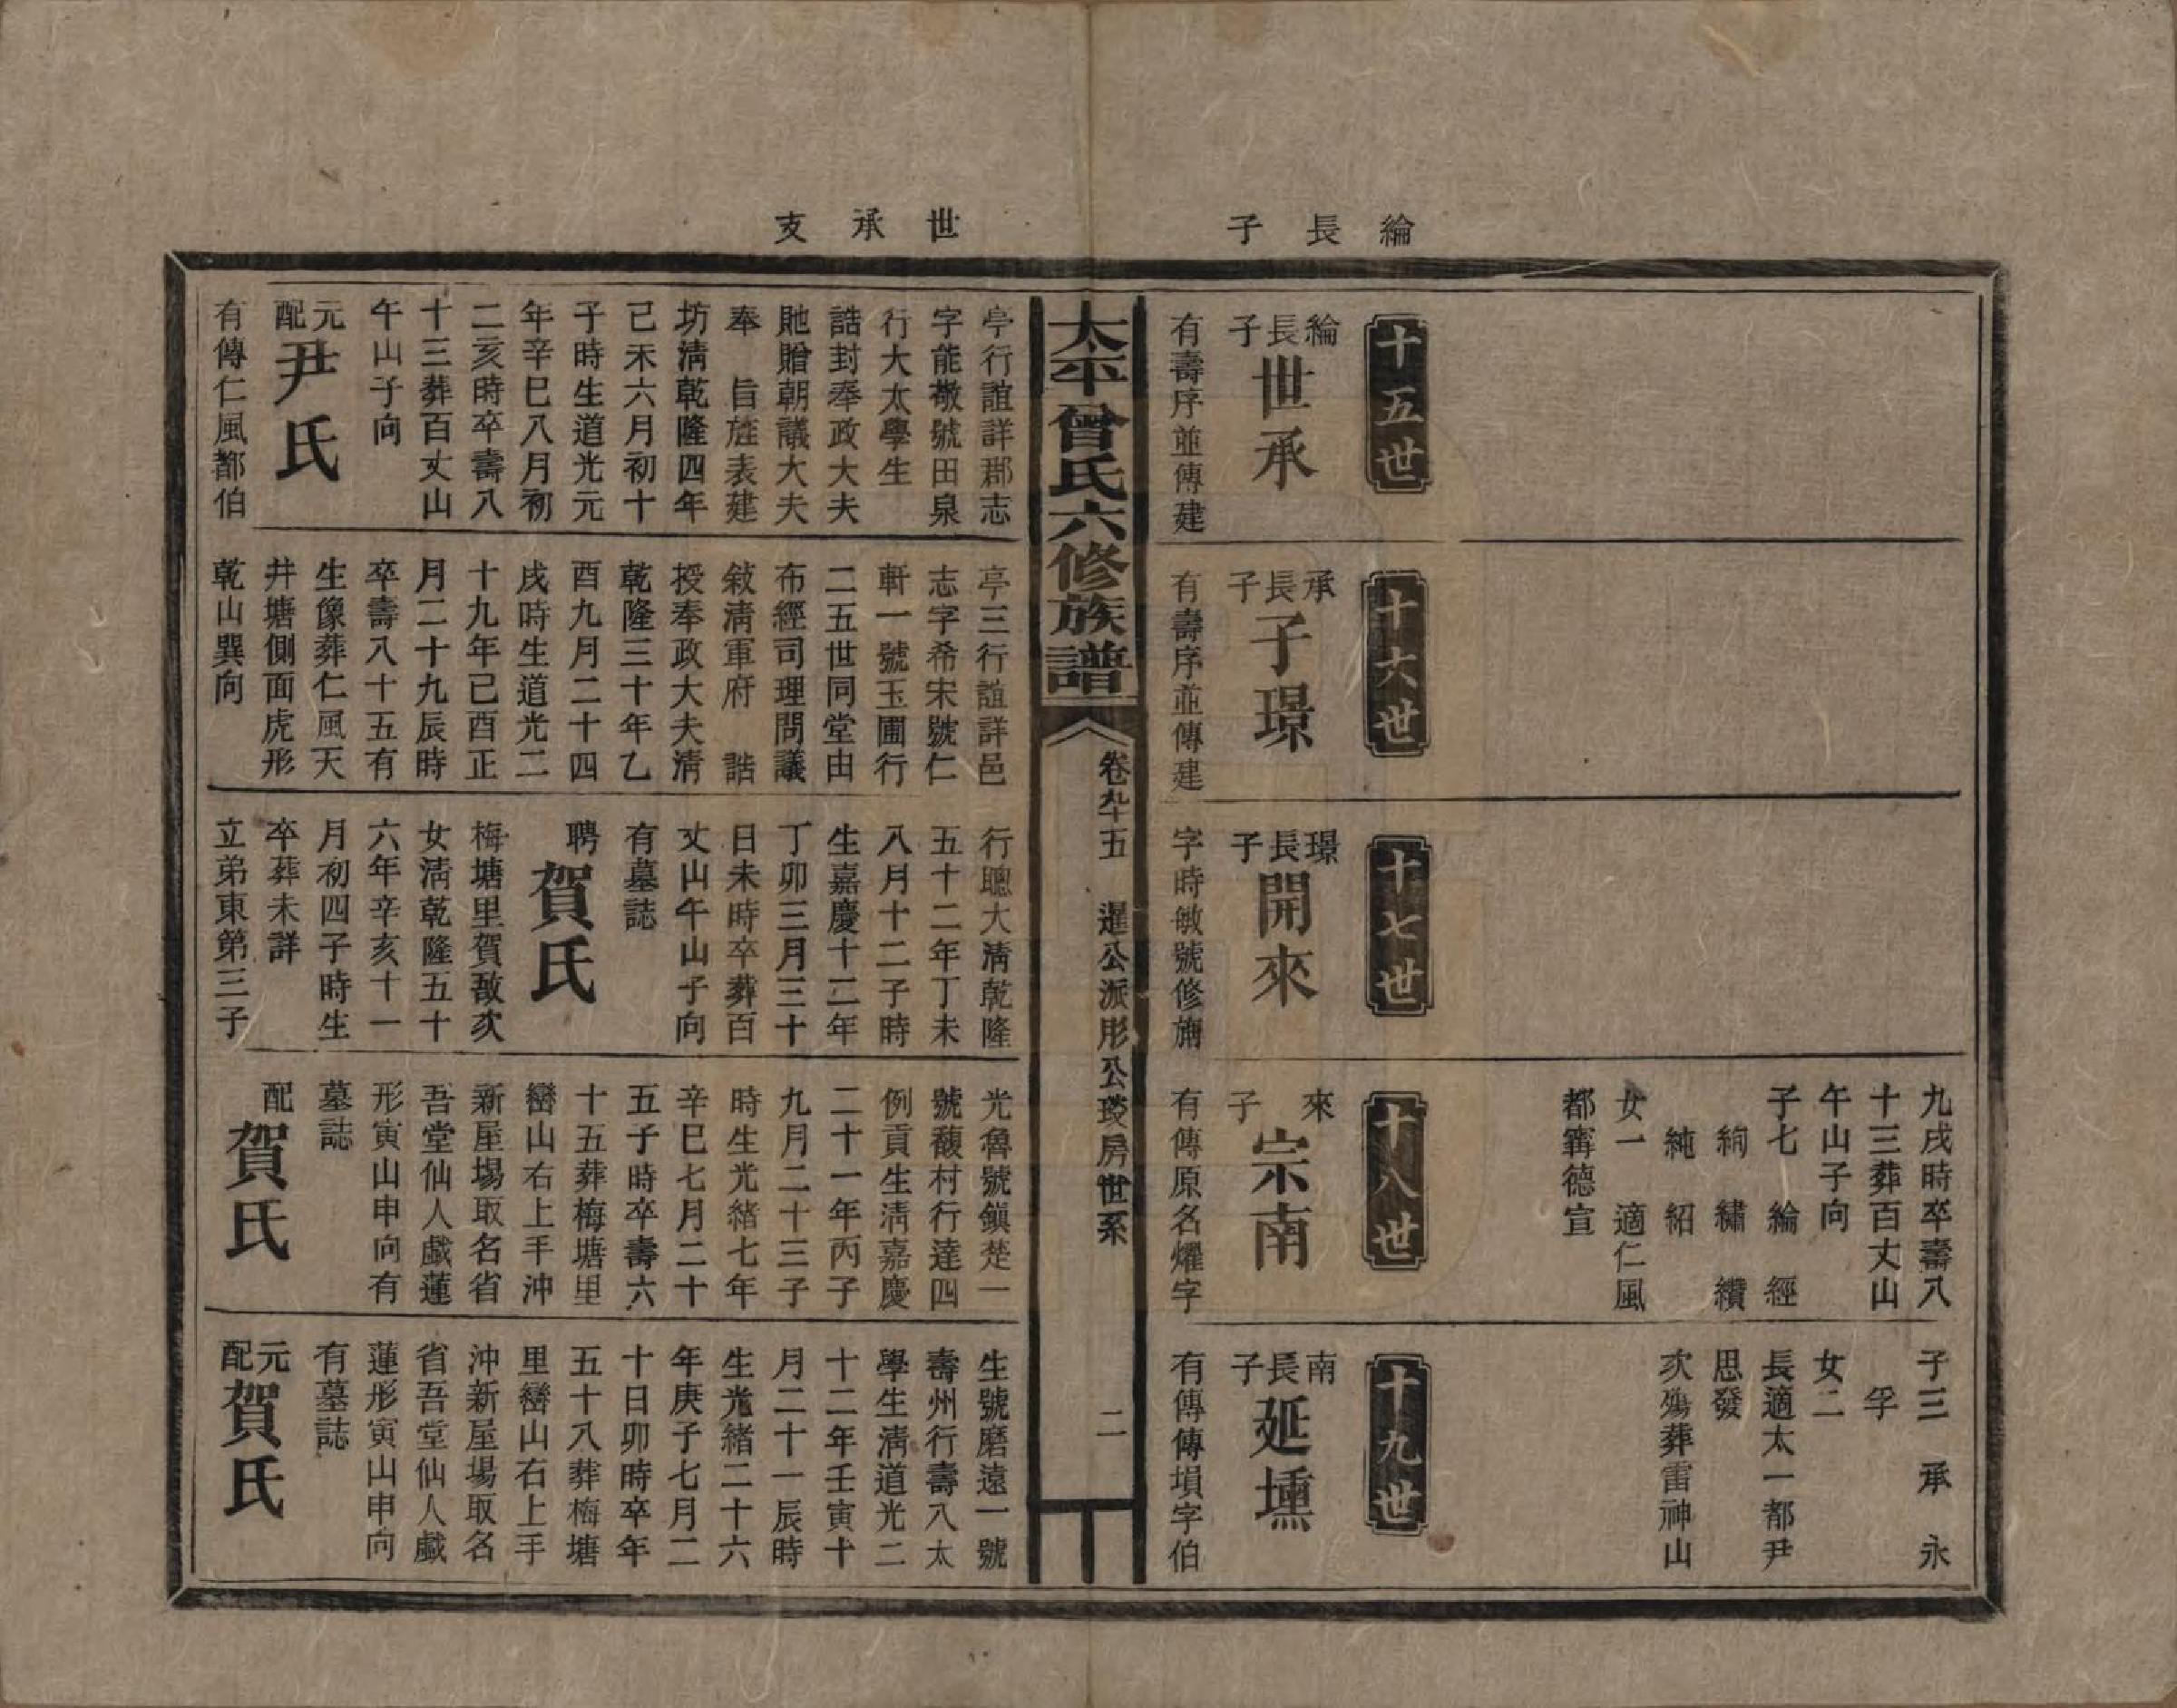 綸長子
世承支
九戌時卒壽八
十三葬百丈山
午山子向
子七　綸　經
絅　繡　纘
純　紹
女一　適仁風
都甯德宣
子三　承　永
孚
女二
長適太一都尹
思發
次殤葬雷神山
十五世
綸長子
世承
有壽序並傳建
十六世
承長子
子璟
有壽序並傳建
十七世
璟長子
開來
字時敏號修
十八世
來子
宗南
有傳原名燿字
十九世
南長子
延壎
有傳傳塤字伯
太平曾氏六修族譜
卷九十五　暹公派彤公琰房世系
二
亭行誼詳郡志
字能敬號田泉
行大太學生
誥封奉政大夫
貤贈朝議大夫
奉　旨旌表建
坊清乾隆四年
己未六月初十
子時生道光元
年辛巳八月初
二亥時卒壽八
十三葬百丈山
午山子向
元配
尹氏
有傳仁風都伯
亭三行誼詳邑
志字希宋號仁
軒一號玉圃行
二五世同堂由
布經司理問議
敍清軍府　誥
授奉政大夫清
乾隆三十年乙
酉九月二十四
戌時生道光二
十九年己酉正
月二十九辰時
卒壽八十五有
生像葬仁風天
井塘側面虎形
乾山巽向
行聰大清乾隆
五十二年丁未
八月十二子時
生嘉慶十二年
丁卯三月三十
日未時卒葬百
丈山午山子向
有墓誌
聘
賀氏
梅塘里賀敔次
女清乾隆五十
六年辛亥十一
月初四子時生
卒葬未詳
立弟東第三子
光魯號鎮楚一
號馥村行達四
例貢生清嘉慶
二十一年丙子
九月二十三子
時生光緒七年
辛巳七月二十
五子時卒壽六
十五葬梅塘里
巒山右上手沖
新屋場取名省
吾堂仙人戲蓮
形寅山申向有
墓誌
配
賀氏
生號磨遠一號
壽州行壽八太
學生清道光二
十二年壬寅十
月二十一辰時
生光緒二十六
年庚子七月二
十日卯時卒年
五十八葬梅塘
里巒山右上手
沖新屋場取名
省吾堂仙人戲
蓮形寅山申向
有墓誌
元配
賀氏